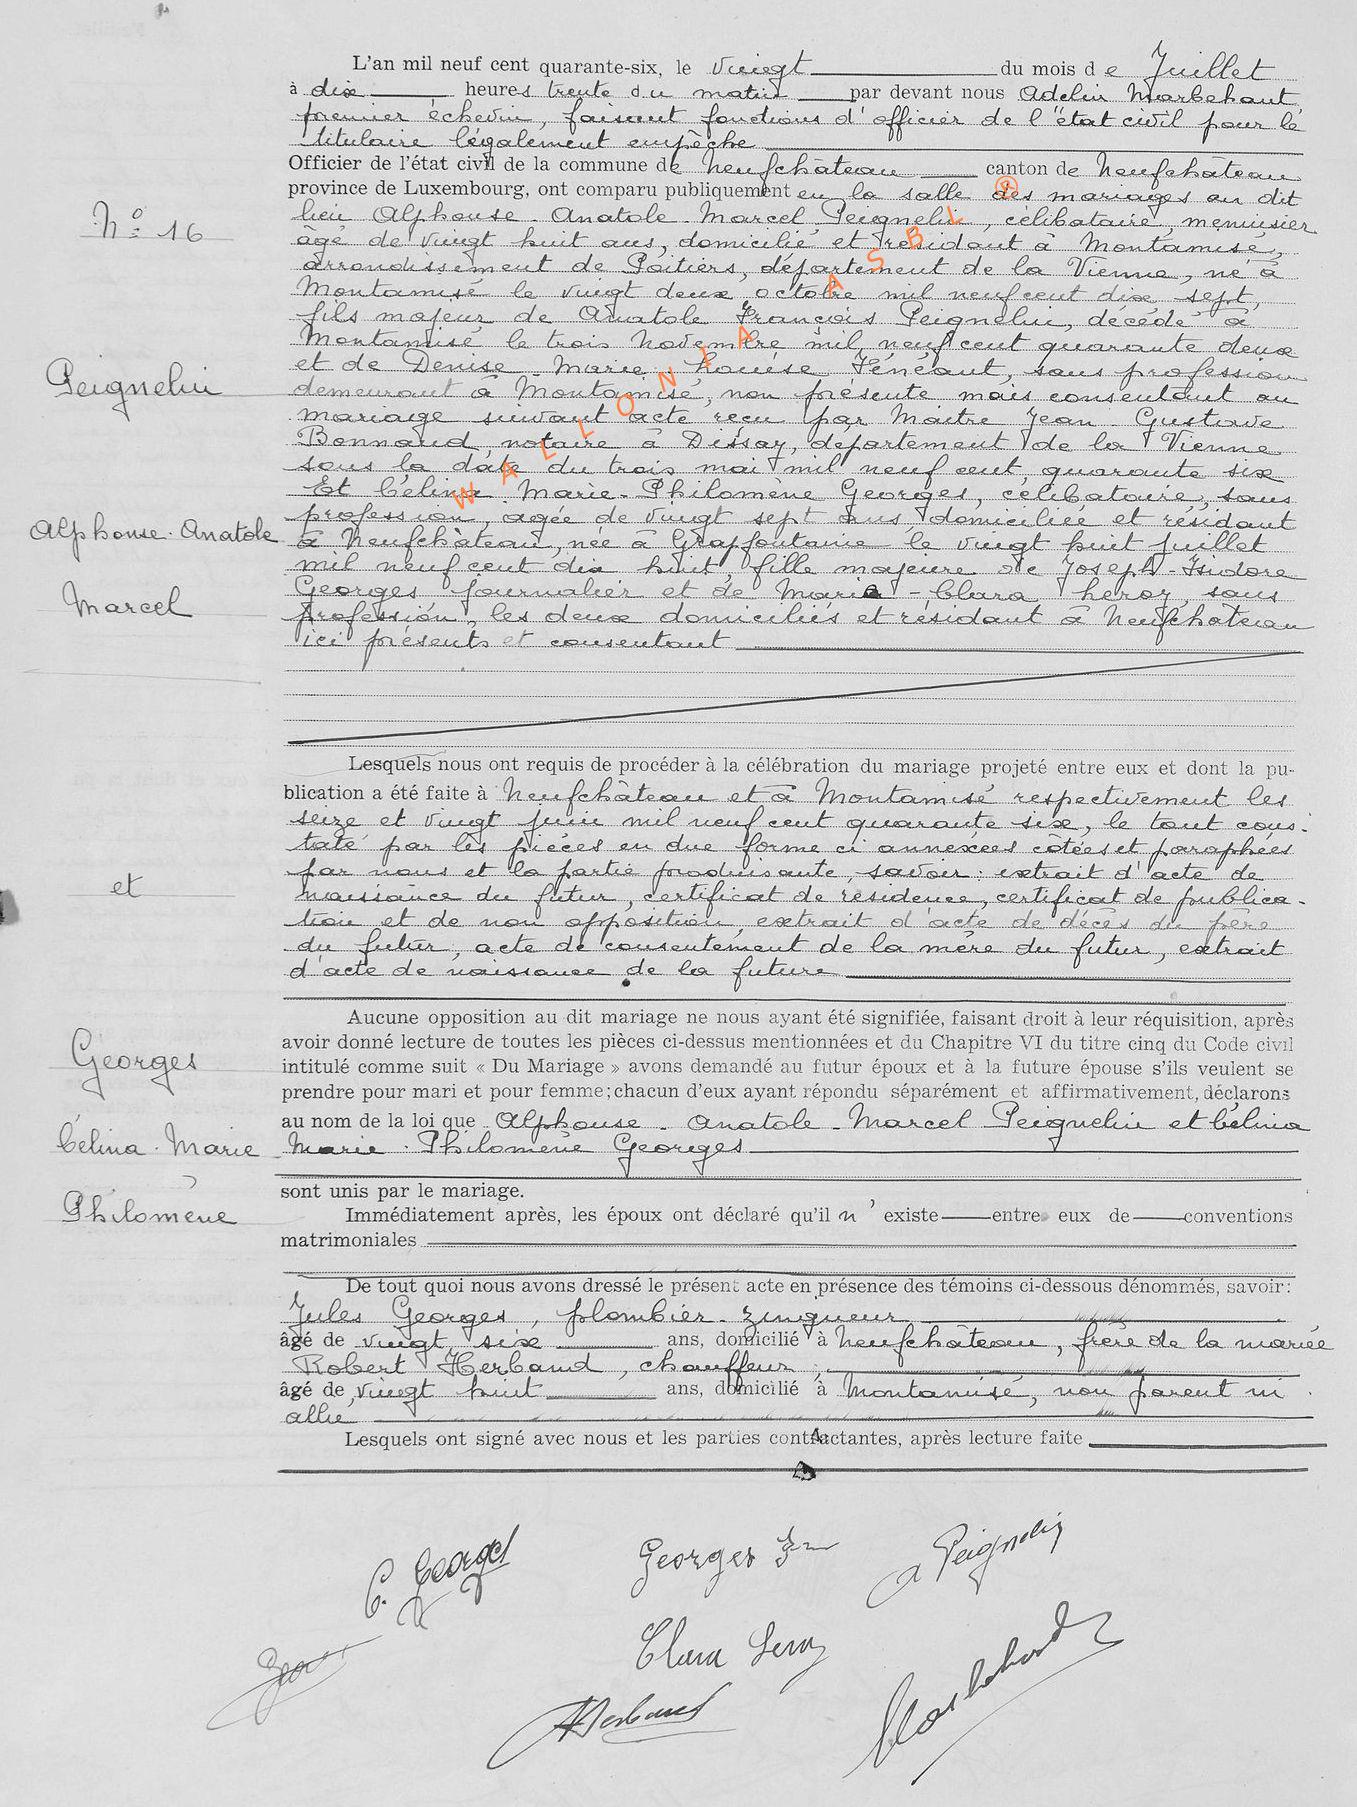 L'an mil neuf cent quarante-six, le vingt du mois de Juillet
à dix heures trente du matin par devant nous Adelin Marbehant,
premier échevin, faisant fonctions d'officier de l'état civil pour le
titulaire légalement empêché
Officier de l'état civil de la commune de Neufchâteau canton de Neufchâteau
province de Luxembourg, ont comparu publiquement en la salle des mariages au dit
N° 16
lieu Alphonse-Anatole-Marcel Peignelin, célibataire, menuisier
âgé de vingt huit ans, domicilié et résidant à Montamisé,
arrondissement de Poitiers, département de la Vienne, né à
Montamisé le vingt deux octobre mil neuf cent dix sept,
fils majeur de Anatole François Peignelin, décédé à
Montamisé le trois Novembre mil neuf cent quarante deux
et de Denise-Marie-Louise Fénéant, sans profession
Peignelin
demeurant à Montamisé, non présente mais consentant au
mariage suivant acte reçu par Maitre Jean-Gustave
Bonnaud, notaire à Dissay, département de la Vienne
sous la date du trois mai mil neuf cent quarante six
Et Célina-Marie-Philomène Georges, célibataire, sans
profession, agée de vingt sept ans, domiciliée et résidant
Alphonse-Anatole
à Neufchâteau, née à Grapfontaine le vingt huit juillet
mil neuf cent dix huit, fille majeure de Joseph-Isidore
Marcel
Georges journalier et de Marie-Clara Leroy, sans
profession, les deux domiciliés et résidant à Neufchâteau
ici présents et consentant
WALLONIA ASBL ®
Lesquels nous ont requis de procéder à la célébration du mariage projeté entre eux et dont la pu-
blication a été faite à Neufchâteau et à Montamisé respectivement les
seize et vingt juin mil neuf cent quarante six, le tout cons-
taté par les pièces en due forme ci annexées côtées et paraphées
par nous et la partie produisante, savoir: extrait d'acte de
et
naissance du futur, certificat de résidence, certificat de publica-
tion et de non opposition, extrait d'acte de décès du père
du futur, acte de consentement de la mère du futur, extrait
d'acte de naissance de la future
Aucune opposition au dit mariage ne nous ayant été signifiée, faisant droit à leur réquisition, après
avoir donné lecture de toutes les pièces ci-dessus mentionnées et du Chapitre VI du titre cinq du Code civil
Georges
intitulé comme suit « Du Mariage » avons demandé au futur époux et à la future épouse s'ils veulent se
prendre pour mari et pour femme; chacun d'eux ayant répondu séparément et affirmativement, déclarons
au nom de la loi que Alphonse-Anatole-Marcel Peignelin et Célina
Célina-Marie
Marie-Philomène Georges
sont unis par le mariage.
Philomène
Immédiatement après, les époux ont déclaré qu'il n'existe entre eux de conventions
matrimoniales
De tout quoi nous avons dressé le présent acte en présence des témoins ci-dessous dénommés, savoir:
Jules Georges, plombier-zingueur
âgé de vingt six ans, domicilié à Neufchâteau, frère de la mariée
Robert Herbaud, chauffeur,
âgé de vingt huit ans, domicilié à Montamisé, non parent ni
allié
Lesquels ont signé avec nous et les parties contractantes, après lecture faite
C. Georges
Georges
A Peignelin
Clara Leroy